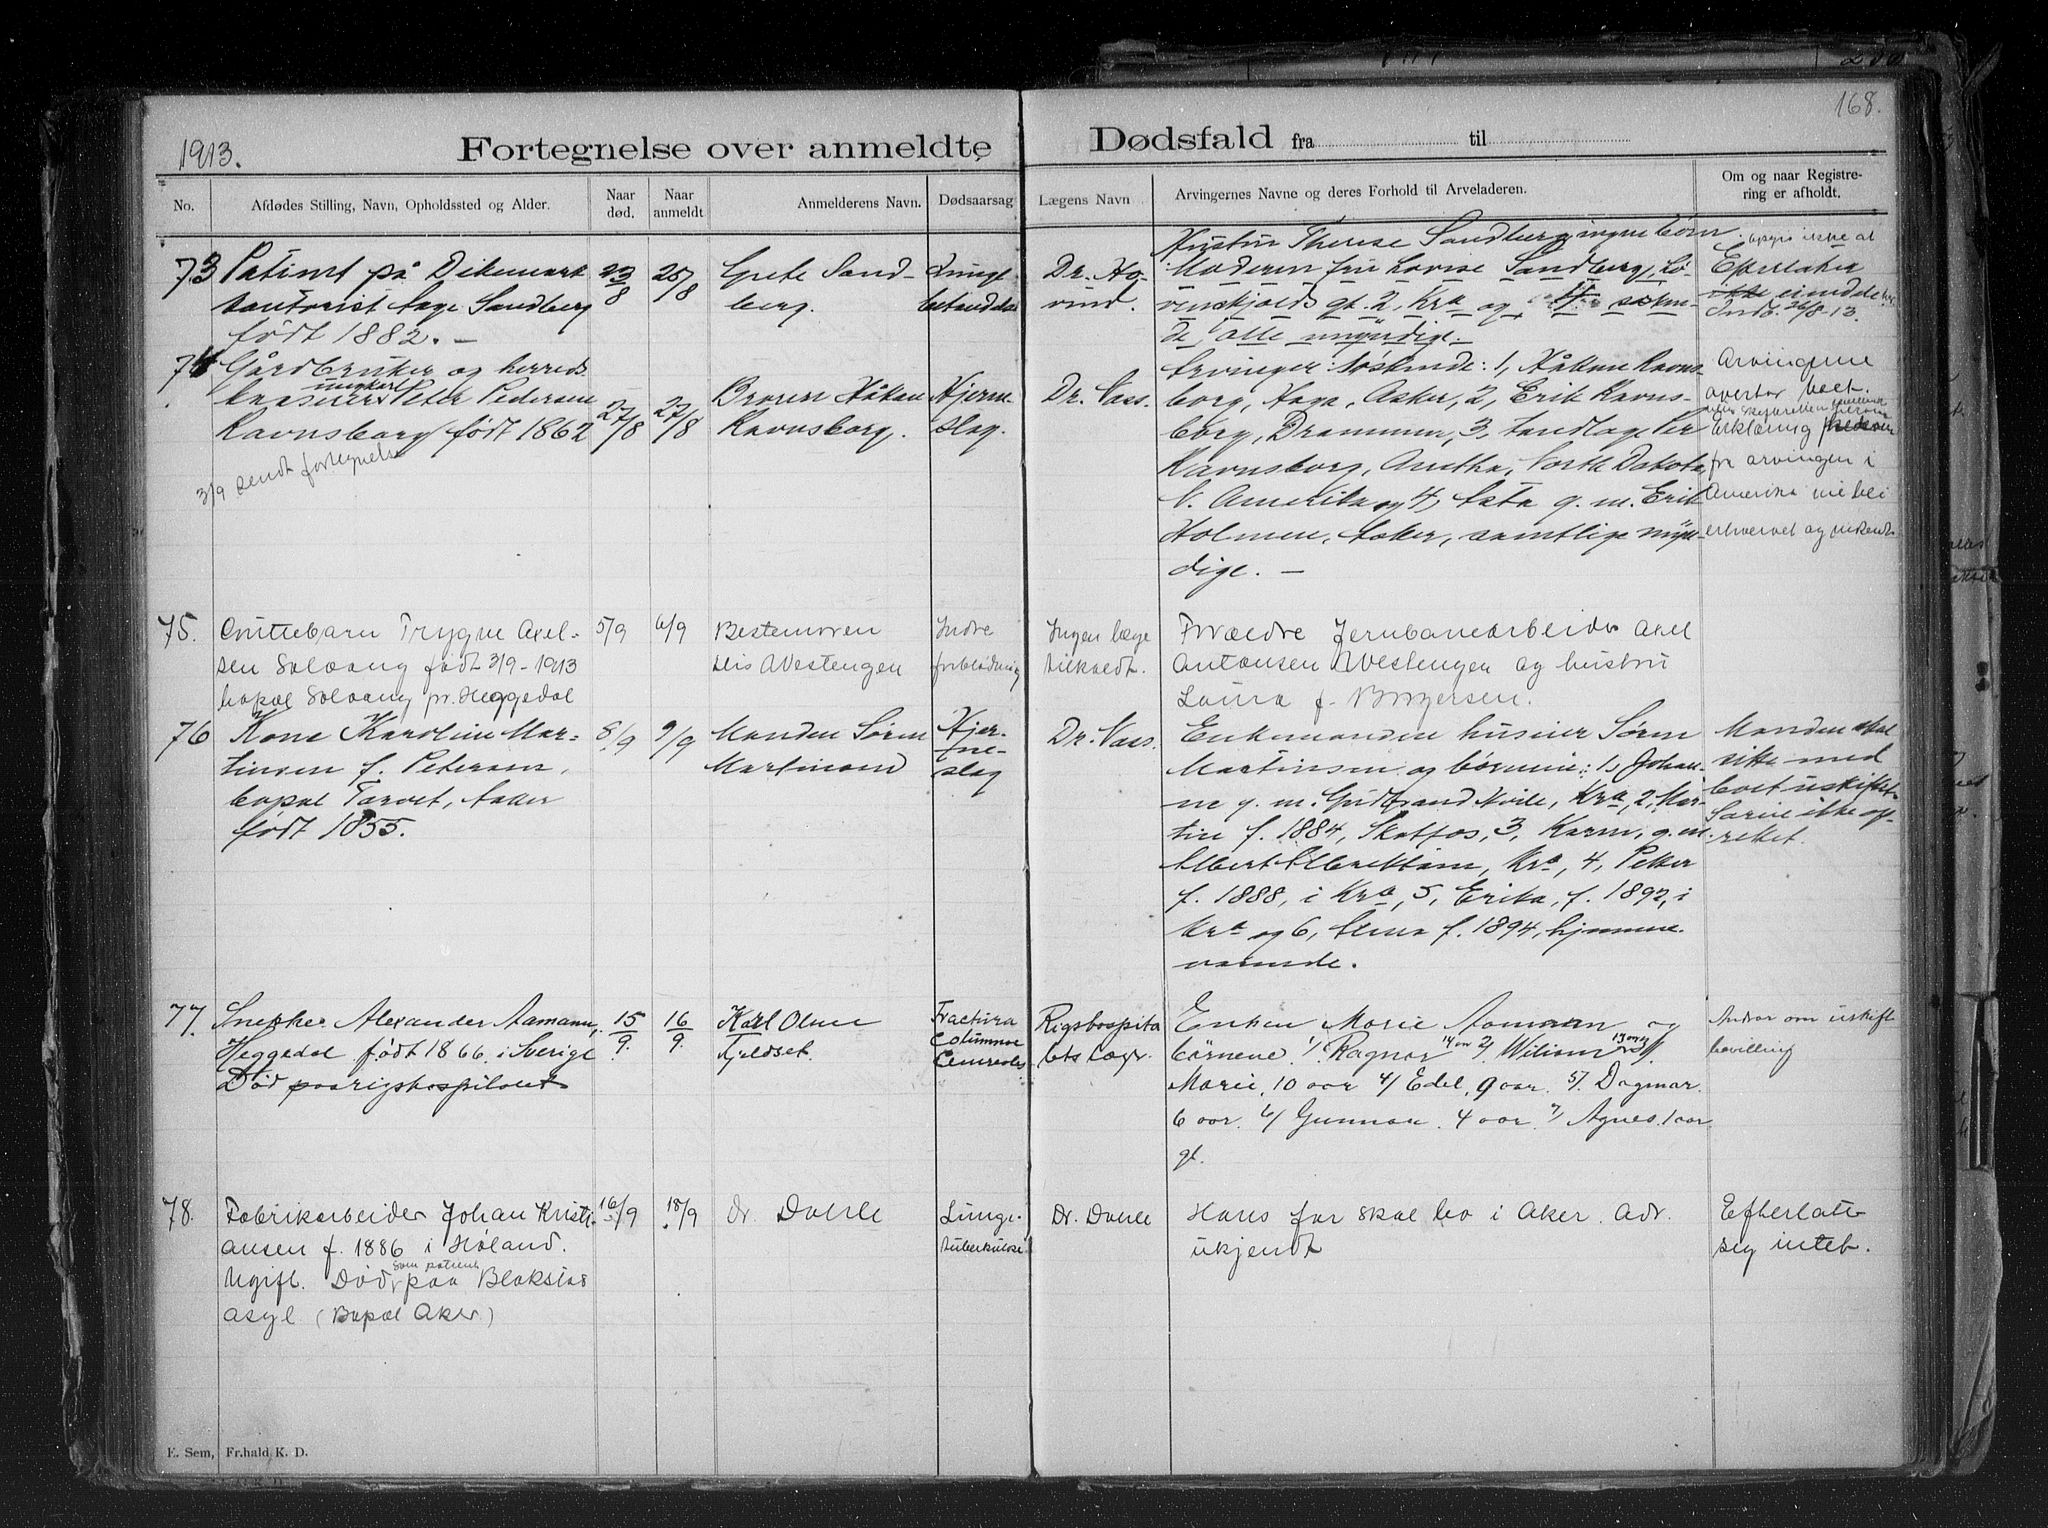 168.
1913.
Fortegnelse over anmeldte Dødsfald fra til
No.
Afdødes Stilling, Navn, Opholdssted og Alder.
Naar død.
Naar anmeldt
Anmelderens Navn.
Dødsaarsag
Lægens Navn
Arvingernes Navne og deres Forhold til Arveladeren.
Om og naar Registrering er afholdt.
73
Patient på Dikemark
Aage Sandberg
født 1882. —
23/8
25/8
Grete Sand-
berg.
Lunge-
betændelse
Dr. Ho-
vind.
Hustru Therese Sandberg, ingen børn
Moderen fru Lovise Sandberg, Lø-
venskjolds gt. 2, Kra og søsken-
de, alle myndige.
Efterlater
26/8-13.
74
Gårdbruker og herreds-
kasserer ungkarl Peter Pedersen
Ravnsborg født 1862
3/9 sendt fortegnelse
27/8
27/8
Broren Håken
Ravnsborg.
Hjerne-
slag.
Dr. Vass.
Arvinger: søskende: 1, Håken Ravns-
borg, Haga, Asker, 2, Erik Ravns-
borg, Drammen, 3, tandlæge Per
Ravnsborg, North Dakota,
N. Amerika og 4, Asta g. m. Erik
Holmen, Asker, samtlige myn-
dige. —
Arvingene
overtar boet.
Erklæring
fra arvingen i
Amerika vil bli
erhvervet og indsendt
75.
Guttebarn Trygve Axel-
sen Solvang født 3/9-1913
bopæl Solvang pr. Heggedal
5/9
6/9
Bestemoren
Lis A Vestengen
Indre
forblødning
Ingen læge
tilkaldt.
Forældre Jernbanearbeider Axel
Antonsen Westengen og hustru
Laura f. Birgersen.
76
Kone Karoline Mar-
tinsen f. Petersen,
bopæl Torvet, Asker
født 1855.
8/9
9/9
Manden Søren
Martinsen
Hjer-
ne-
slag
Dr. Vass.
Enkemanden huseier Søren
Martinsen og børnene: 1, Johan-
ne g. m. Gudbrand Kvile, Kra, 2, Mar-
tin f. 1884, Skotfos, 3, Karen, g. m.
Albert Albretsen, Kra, 4, Petter
f. 1888, i Kra, 5, Erika, f. 1892, i
Kra og 6, Anna f. 1894, hjemme-
værende.
Manden skal
sitte med
boet uskiftet
ikke op-
rettet.
77.
Snekker Alexander Aamann,
Heggedal født 1866 i Sverige
Død paa rigshospitalet
15/9.
16/9.
Karl Olsen
Gjeldset.
Fractura
Columnae
Rigshospita-
lets Læge.
Enken Marie Aamann og
børnene 1/ Ragnar 14 aar 2/ Wiliam 13 aar 3/
Marie, 10 aar 4/ Edel, 9 aar. 5/. Dagmar.
6 aar. 6/ Gunnar. 4 aar. 7/ Agnes. 1 aar
gl.
Andrar om uskift
bevilling
78.
Fabrikarbeider Johan Kristi-
ansen f. 1886 i Høland.
Ugift. Død som patient paa Blakstad
asyl (Bopæl Aker)
16/9
18/9
Dr. Doerle
Lunge-
tuberkulose
Dr. Doerle
Hans far skal bo i Aker. Adr.
ukjendt
Efterlatt
sig intet.
E. Sem, Fr.hald K. D.